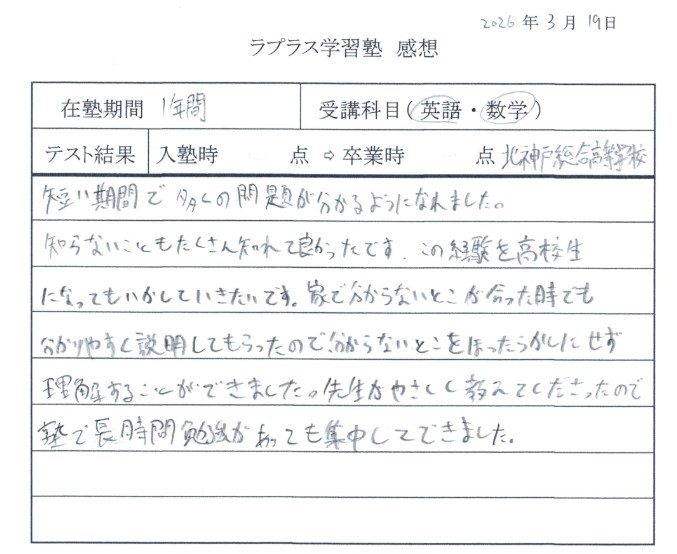 2026年3月19日
ラプラス学習塾 感想
在塾期間 1年間 受講科目(英語・数学)
テスト結果 入塾時 点 ⇨ 卒業時 点 北神戸総合高等学校
短い期間で多くの問題が分かるようになれました。
知らないこともたくさん知れて良かったです。この経験を高校生
になってもいかしていきたいです。家で分からないとこが合った時でも
分かりやすく説明してもらったので分からないとこをほったらかしにせず
理解することができました。先生がやさしく教えてくださったので
塾で長時間勉強があっても集中してできました。